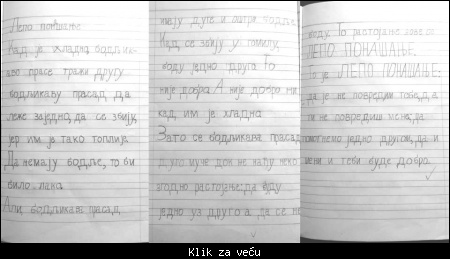 Лепо понашање
Кад је хладно бодљи-
каво прасе тражи другу
бодљикаву прасад да
леже заједно, да се збију,
јер им је тако топлије.
Да немају бодље, то би
било лако.
Али бодљикава прасад
имају дуге и оштре бодље.
Кад се збију у гомилу,
боду једно друго. То
није добро. А није добро ни
кад им је хладно.
Зато се бодљикава прасад
дуго муче док не нађу неко
згодно растојање: да буду
једно уз друго а да се не
боду. То растојање зове се
ЛЕПО ПОНАШАЊЕ.
То је ЛЕПО ПОНАШАЊЕ:
да ја не повредим тебе, а
ти не повредиш мене, да
помогнемо једно другом, да и
мени и теби буде добро.
Klik za veću